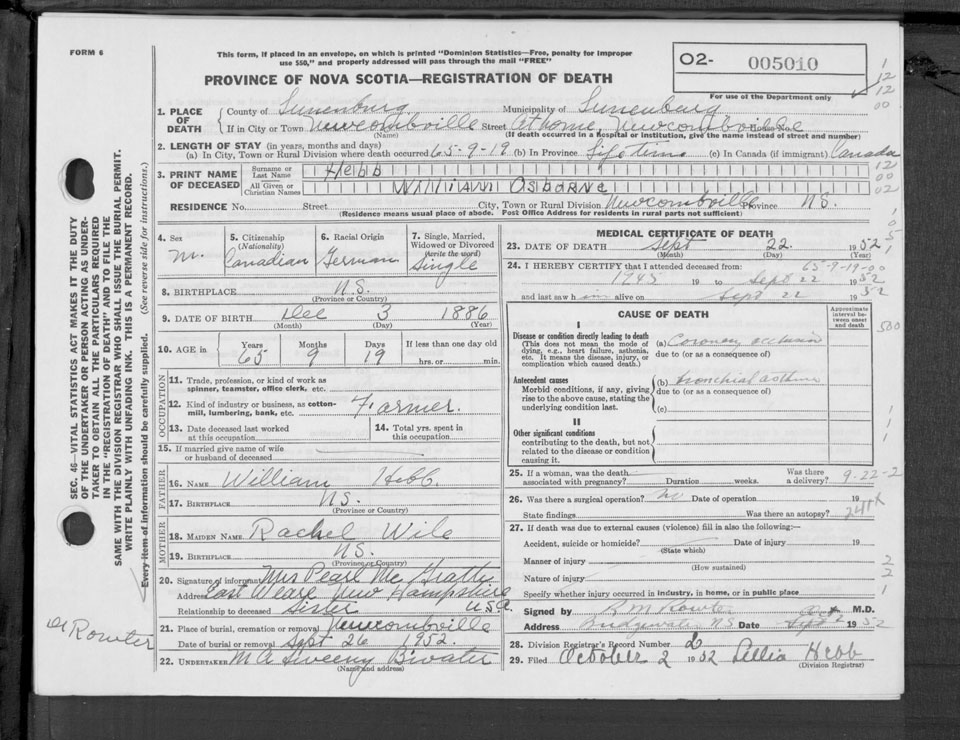 FORM 6
This form, if placed in an envelope, on which is printed "Dominion Statistics—Free, penalty for improper
use $50," and properly addressed will pass through the mail "FREE"
PROVINCE OF NOVA SCOTIA—REGISTRATION OF DEATH
O2- 005010
For use of the Department only
1. PLACE OF DEATH
County of Lunenburg Municipality of Lunenburg
If in City or Town Newcombville Street At home, Newcombville
(Name) (If death occurred in a hospital or institution, give the name instead of street and number)
2. LENGTH OF STAY (in years, months and days)
(a) In City, Town or Rural Division where death occurred 65-9-19 (b) In Province Life time (c) In Canada (if immigrant) Canada
3. PRINT NAME OF DECEASED
Surname or Last Name Hebb
All Given or Christian Names William Osborne
RESIDENCE No. Street City, Town or Rural Division Newcombville Province N.S.
(Residence means usual place of abode. Post Office Address for residents in rural parts not sufficient)
4. Sex m.
5. Citizenship (Nationality) Canadian
6. Racial Origin German
7. Single, Married, Widowed or Divorced (write the word) Single
8. BIRTHPLACE N.S.
(Province or Country)
9. DATE OF BIRTH Dec 3 1886
(Month) (Day) (Year)
10. AGE in Years 65 Months 9 Days 19 If less than one day old
hrs. or min.
OCCUPATION
11. Trade, profession, or kind of work as
spinner, teamster, office clerk, etc.
12. Kind of industry or business, as cotton-
mill, lumbering, bank, etc. Farmer.
13. Date deceased last worked
at this occupation
14. Total yrs. spent in
this occupation
15. If married give name of wife
or husband of deceased
FATHER
16. NAME William Hebb.
17. BIRTHPLACE N.S.
(Province or Country)
MOTHER
18. MAIDEN NAME Rachel Wile
19. BIRTHPLACE N.S.
(Province or Country)
20. Signature of informant Mrs Pearl Mc Grath
Address East Weare New Hampshire
Relationship to deceased Sister U S A.
21. Place of burial, cremation or removal Newcombville
Date of burial or removal Sept 26 1952.
22. UNDERTAKER M A Sweeny B'water
(Name and address)
MEDICAL CERTIFICATE OF DEATH
23. DATE OF DEATH Sept 22. 1952
(Month) (Day) (Year)
65-9-19-00
24. I HEREBY CERTIFY that I attended deceased from:
1945 19 to Sept 22 1952
and last saw h im alive on Sept 22 1952
CAUSE OF DEATH
Approximate interval between onset and death
I
Disease or condition directly leading to death
(This does not mean the mode of
dying, e.g., heart failure, asthenia,
etc. It means the disease, injury, or
complication which caused death.)
(a) Coronary occlusion
due to (or as a consequence of)
Antecedent causes
Morbid conditions, if any, giving
rise to the above cause, stating the
underlying condition last.
(b) bronchial asthma
due to (or as a consequence of)
(c)
II
Other significant conditions
contributing to the death, but not
related to the disease or condition
causing it.
25. If a woman, was the death
associated with pregnancy? Duration weeks. Was there a delivery? 9-22-2
26. Was there a surgical operation? no Date of operation 19
State findings Was there an autopsy?
27. If death was due to external causes (violence) fill in also the following:—
Accident, suicide or homicide? Date of injury 19
(State which)
Manner of injury
(How sustained)
Nature of injury
Specify whether injury occurred in industry, in home, or in public place
Signed by M.D.
Address Bridgewater N.S Date Oct 2 1952
28. Division Registrar's Record Number
29. Filed October 2 1952 Lellia Hebb
(Division Registrar)
SEC. 46—VITAL STATISTICS ACT MAKES IT THE DUTY
OF THE UNDERTAKER OR PERSON ACTING AS UNDER-
TAKER TO OBTAIN ALL THE PARTICULARS REQUIRED
IN THE "REGISTRATION OF DEATH" AND TO FILE THE
SAME WITH THE DIVISION REGISTRAR WHO SHALL ISSUE THE BURIAL PERMIT.
WRITE PLAINLY WITH UNFADING INK. THIS IS A PERMANENT RECORD.
Every item of information should be carefully supplied. (See reverse side for instructions.)